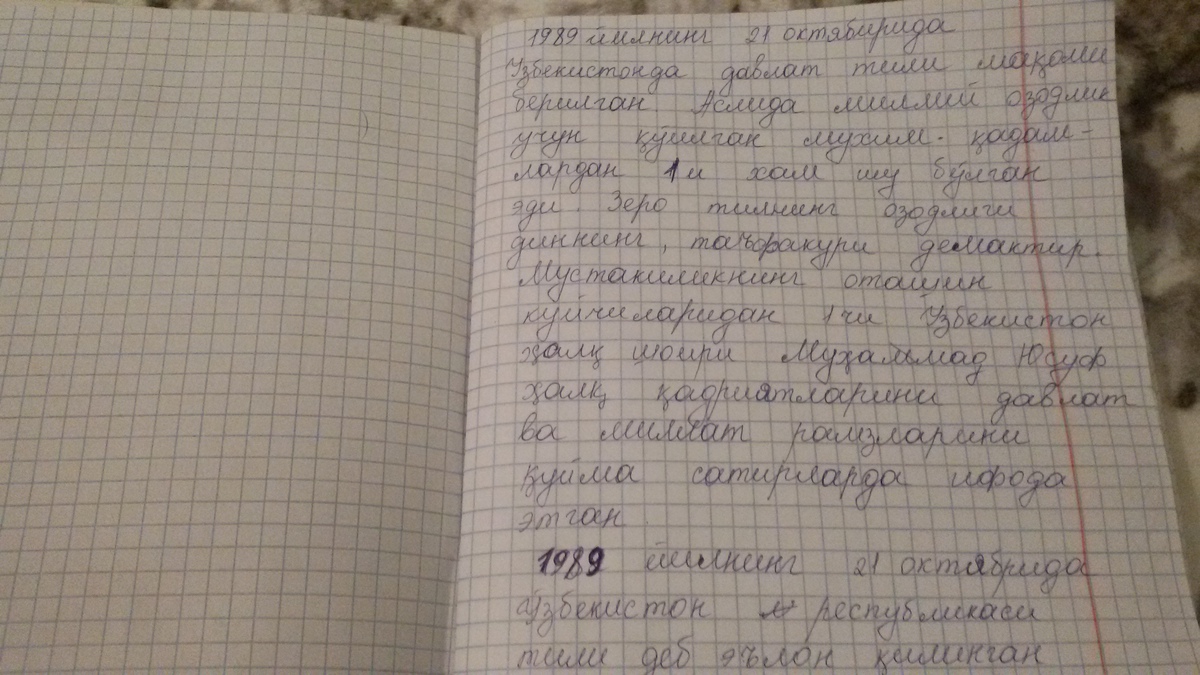 1989 йилнинг 21 октябирида
Узбекистонда давлат тили мақоми
берилган Аслида миллий озодлик
учун қўйилган мухим. қадам-
лардан 1 и хам шу бўлган
эди. Зеро тилнинг озодлиги
диннинг, демактир.
Мустакиликнинг оташин
куйчиларидан 1 чи Ўзбекистон
ҳалқ шоири Муҳаммад Юсуф
ҳалқ қадриятларини давлат
ва миллат рамзларини
қуйма сатирларда ифода
этган.
1989 йилнинг 21 октябрида
Ўзбекистон республикаси
тили деб эълон қилинган